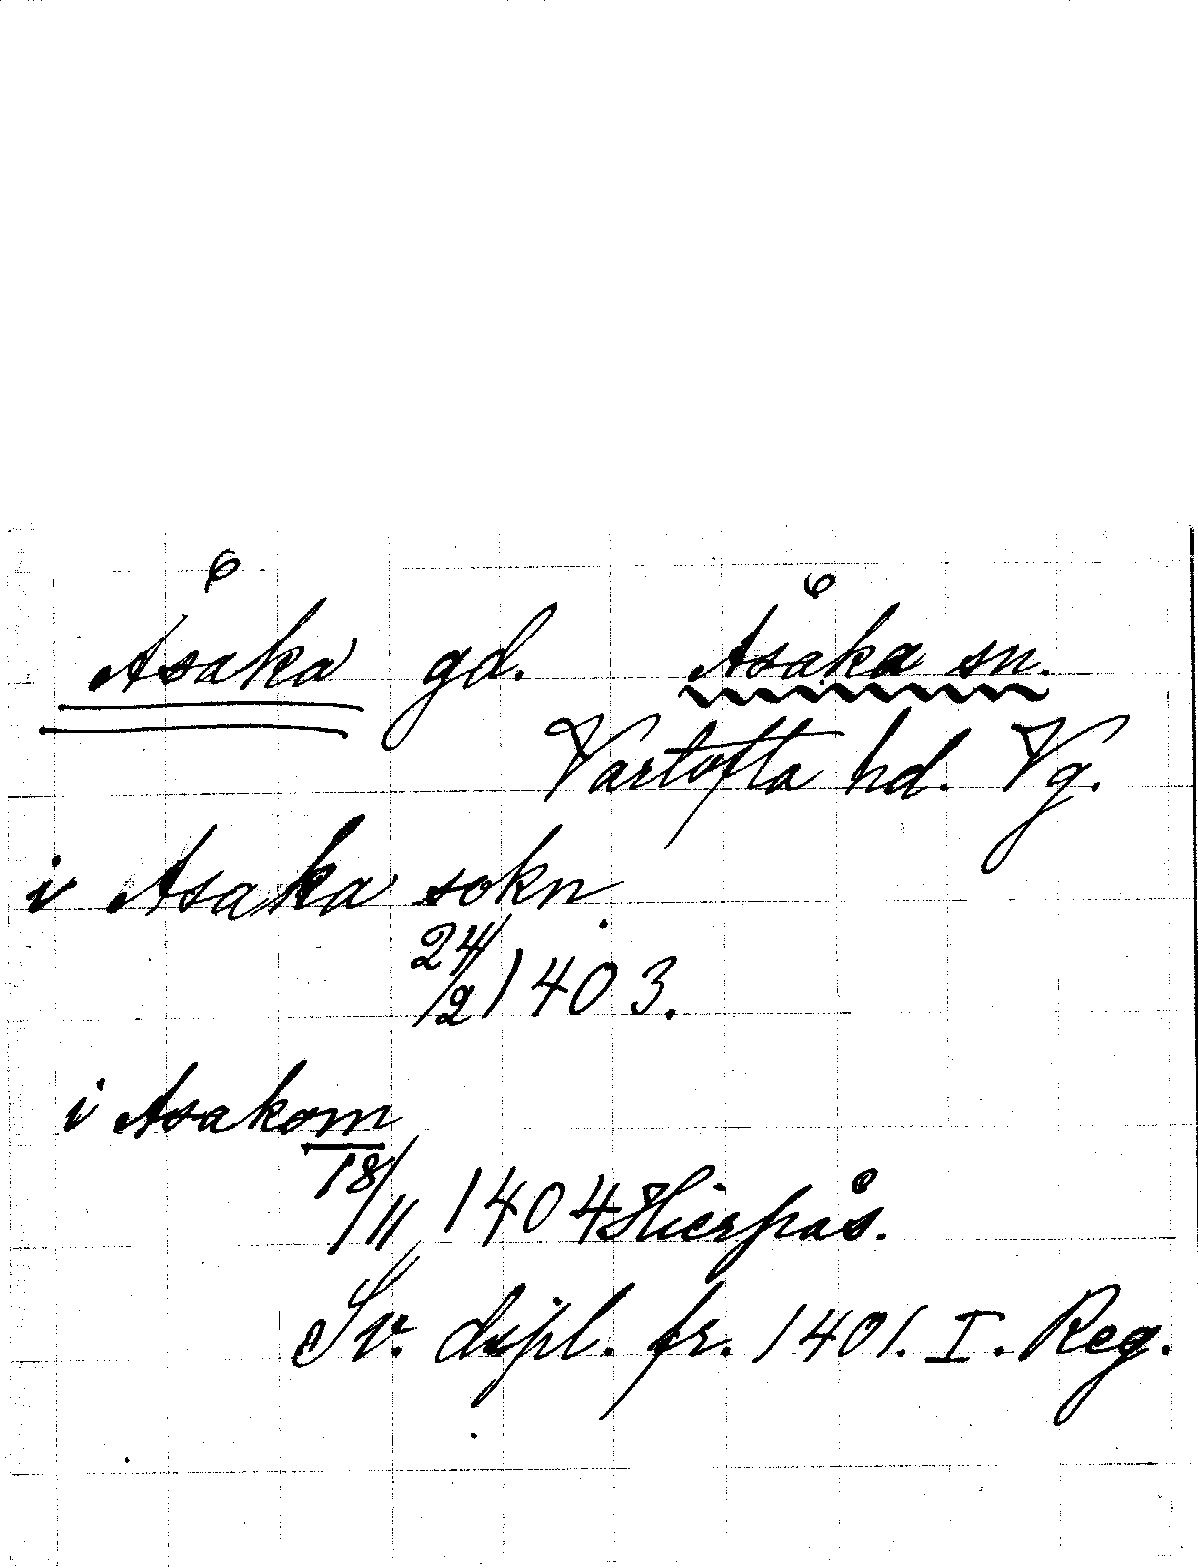 Åsaka gd. Åsaka sn.
Vartofta hd. Vg.
i Asaka sokn.
24/2 1403.
i Asakom
18/11 1404 Hierpås.
Sv. dipl. fr. 1401. I. Reg.